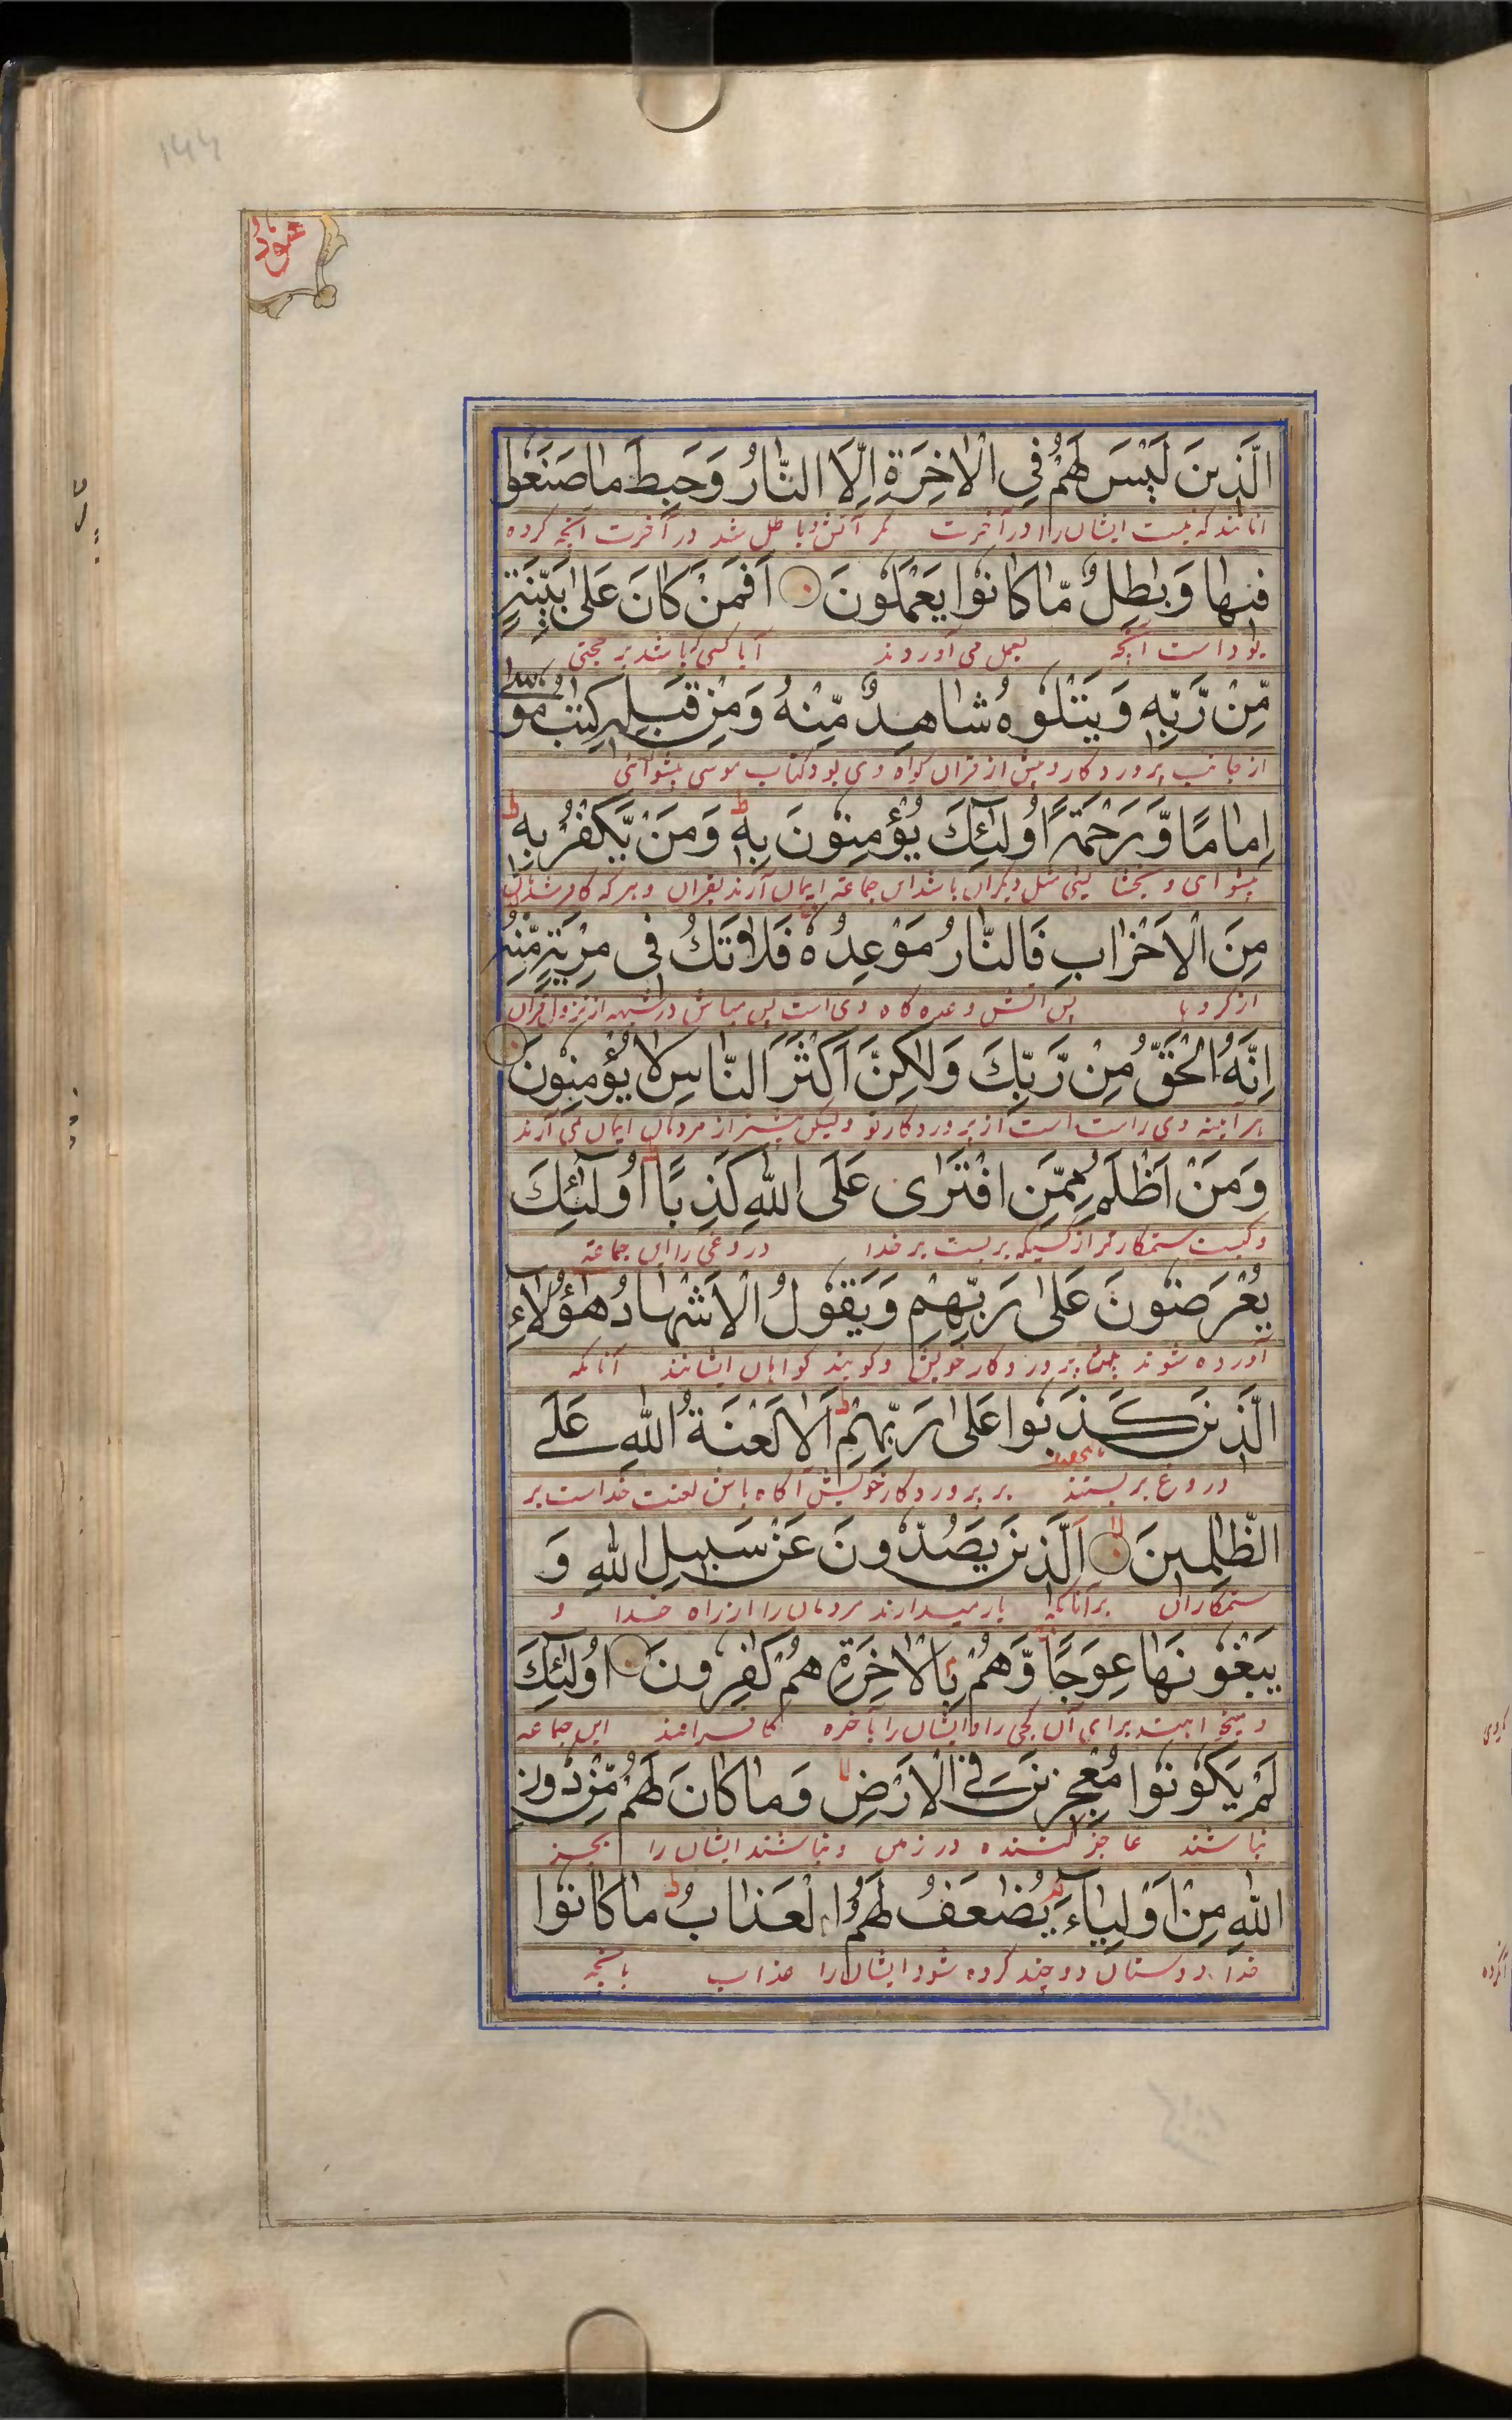 الَّذِينَ لَيْسَ لَهُمْ فِي الْاٰخِرَةِ اِلَّا النَّارُ وَحَبِطَ مَا صَنَعُوْا
آنانند که نیست ایشان را در آخرت مگر آتش و باطل شد در آخرت آنچه کرده
فِيْهَا وَبٰطِلٌ مَّا كَانُوْا يَعْمَلُوْنَ اَفَمَنْ كَانَ عَلٰى بَيِّنَةٍ
بودا است آنچه بعمل می آوردند آیا کسی که باشد بر حجتی
مِّنْ رَّبِّهٖ وَيَتْلُوْهُ شَاهِدٌ مِّنْهُ وَمِنْ قَبْلِهٖ كِتٰبُ مُوْسٰى
از جانب پروردکار و پیش از قران کواه وی بود کتاب موسی پیشوائی
اِمَامًا وَّرَحْمَةً اُولٰٓئِكَ يُؤْمِنُوْنَ بِهٖ وَمَنْ يَّكْفُرْ بِهٖ
پیشوای و بخشا یعنی مثل دیکران باشد این جماعة ایمان آرند بقران و هر که کافر شد بآن
مِنَ الْاَحْزَابِ فَالنَّارُ مَوْعِدُهٗ فَلَا تَكُ فِى مِرْيَةٍ مِّنْهُ
از کروها پس آتش وعده کاه وی است پس مباش در شبهه از نزول قران
اِنَّهُ الْحَقُّ مِنْ رَّبِّكَ وَلٰكِنَّ اَكْثَرَ النَّاسِ لَا يُؤْمِنُوْنَ
هر آینه وی راست است از پروردکار تو ولیکن بیشتر از مردمان ایمان نمی آرند
وَمَنْ اَظْلَمُ مِمَّنِ افْتَرٰى عَلَى اللّٰهِ كَذِبًا اُولٰٓئِكَ
و کیست ستمکارتر از کسیکه بر بست بر خدا دروغی را این جماعة
يُعْرَضُوْنَ عَلٰى رَبِّهِمْ وَيَقُوْلُ الْاَشْهَادُ هٰٓؤُلَاءِ
آورده شوند پیش پروردکار خویش و کویند کواهان ایشانند آنانکه
الَّذِيْنَ كَذَبُوْا عَلٰى رَبِّهِمْ اَلَا لَعْنَةُ اللّٰهِ عَلَى
دروغ بر بستند بر پروردکار خویش آکاه باش لعنت خداست بر
الظّٰلِمِيْنَ اَلَّذِيْنَ يَصُدُّوْنَ عَنْ سَبِيْلِ اللّٰهِ وَ
ستمکاران بر آنانکه باز میدارند مردمان را از راه خدا و
يَبْغُوْنَهَا عِوَجًا وَّهُمْ بِالْاٰخِرَةِ هُمْ كٰفِرُوْنَ اُولٰٓئِكَ
و میخواهند برای آن کجی را و ایشان را بآخره کافرانند این جماعه
لَمْ يَكُوْنُوْا مُعْجِزِيْنَ فِى الْاَرْضِ وَمَا كَانَ لَهُمْ مِّنْ دُوْنِ
نباشند عاجز کننده در زمین و نباشند ایشان را بجز
اللّٰهِ مِنْ اَوْلِيَاءَ يُضٰعَفُ لَهُمُ الْعَذَابُ مَا كَانُوْا
خدا دوستان دو چند کرده شود ایشان را عذاب بآنچه